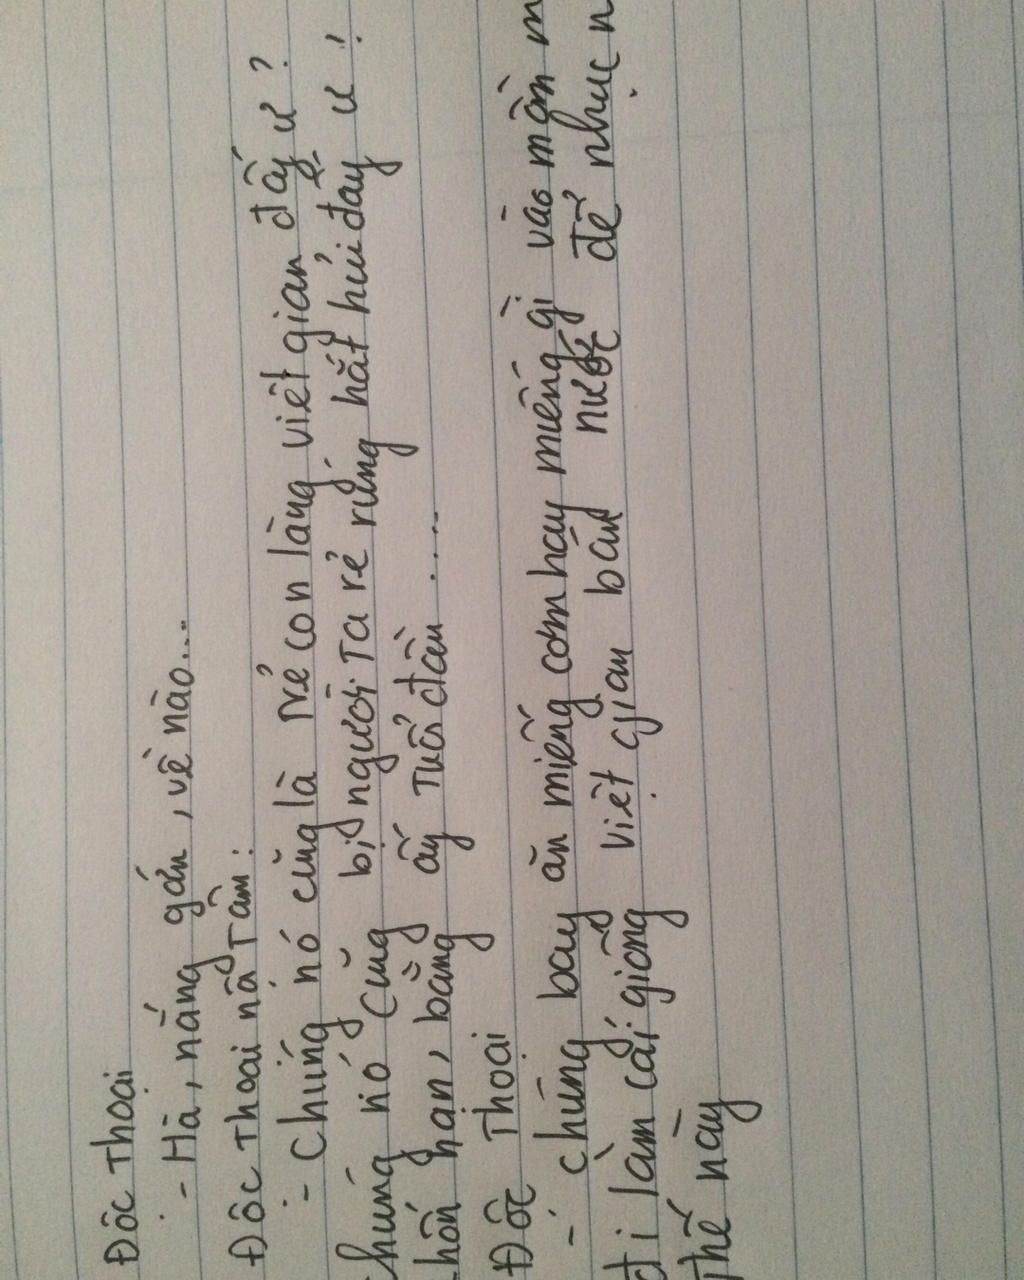 Độc Thoại
- Hà, nắng gắn, về nào...
Độc Thoại nội Tâm:
- Chúng nó cũng là Trẻ con làng việt gian đấy ư?
chúng nó cũng bị người Ta rẻ rúng hắt hủi đấy ư!
khốn nạn, bằng ấy Tuổi đầu.....
Độc Thoại
- chúng bay ăn miếng cơm hay miếng gì vào mồm m
đi làm cái giống việt gian bán nước để nhục n
Thế này